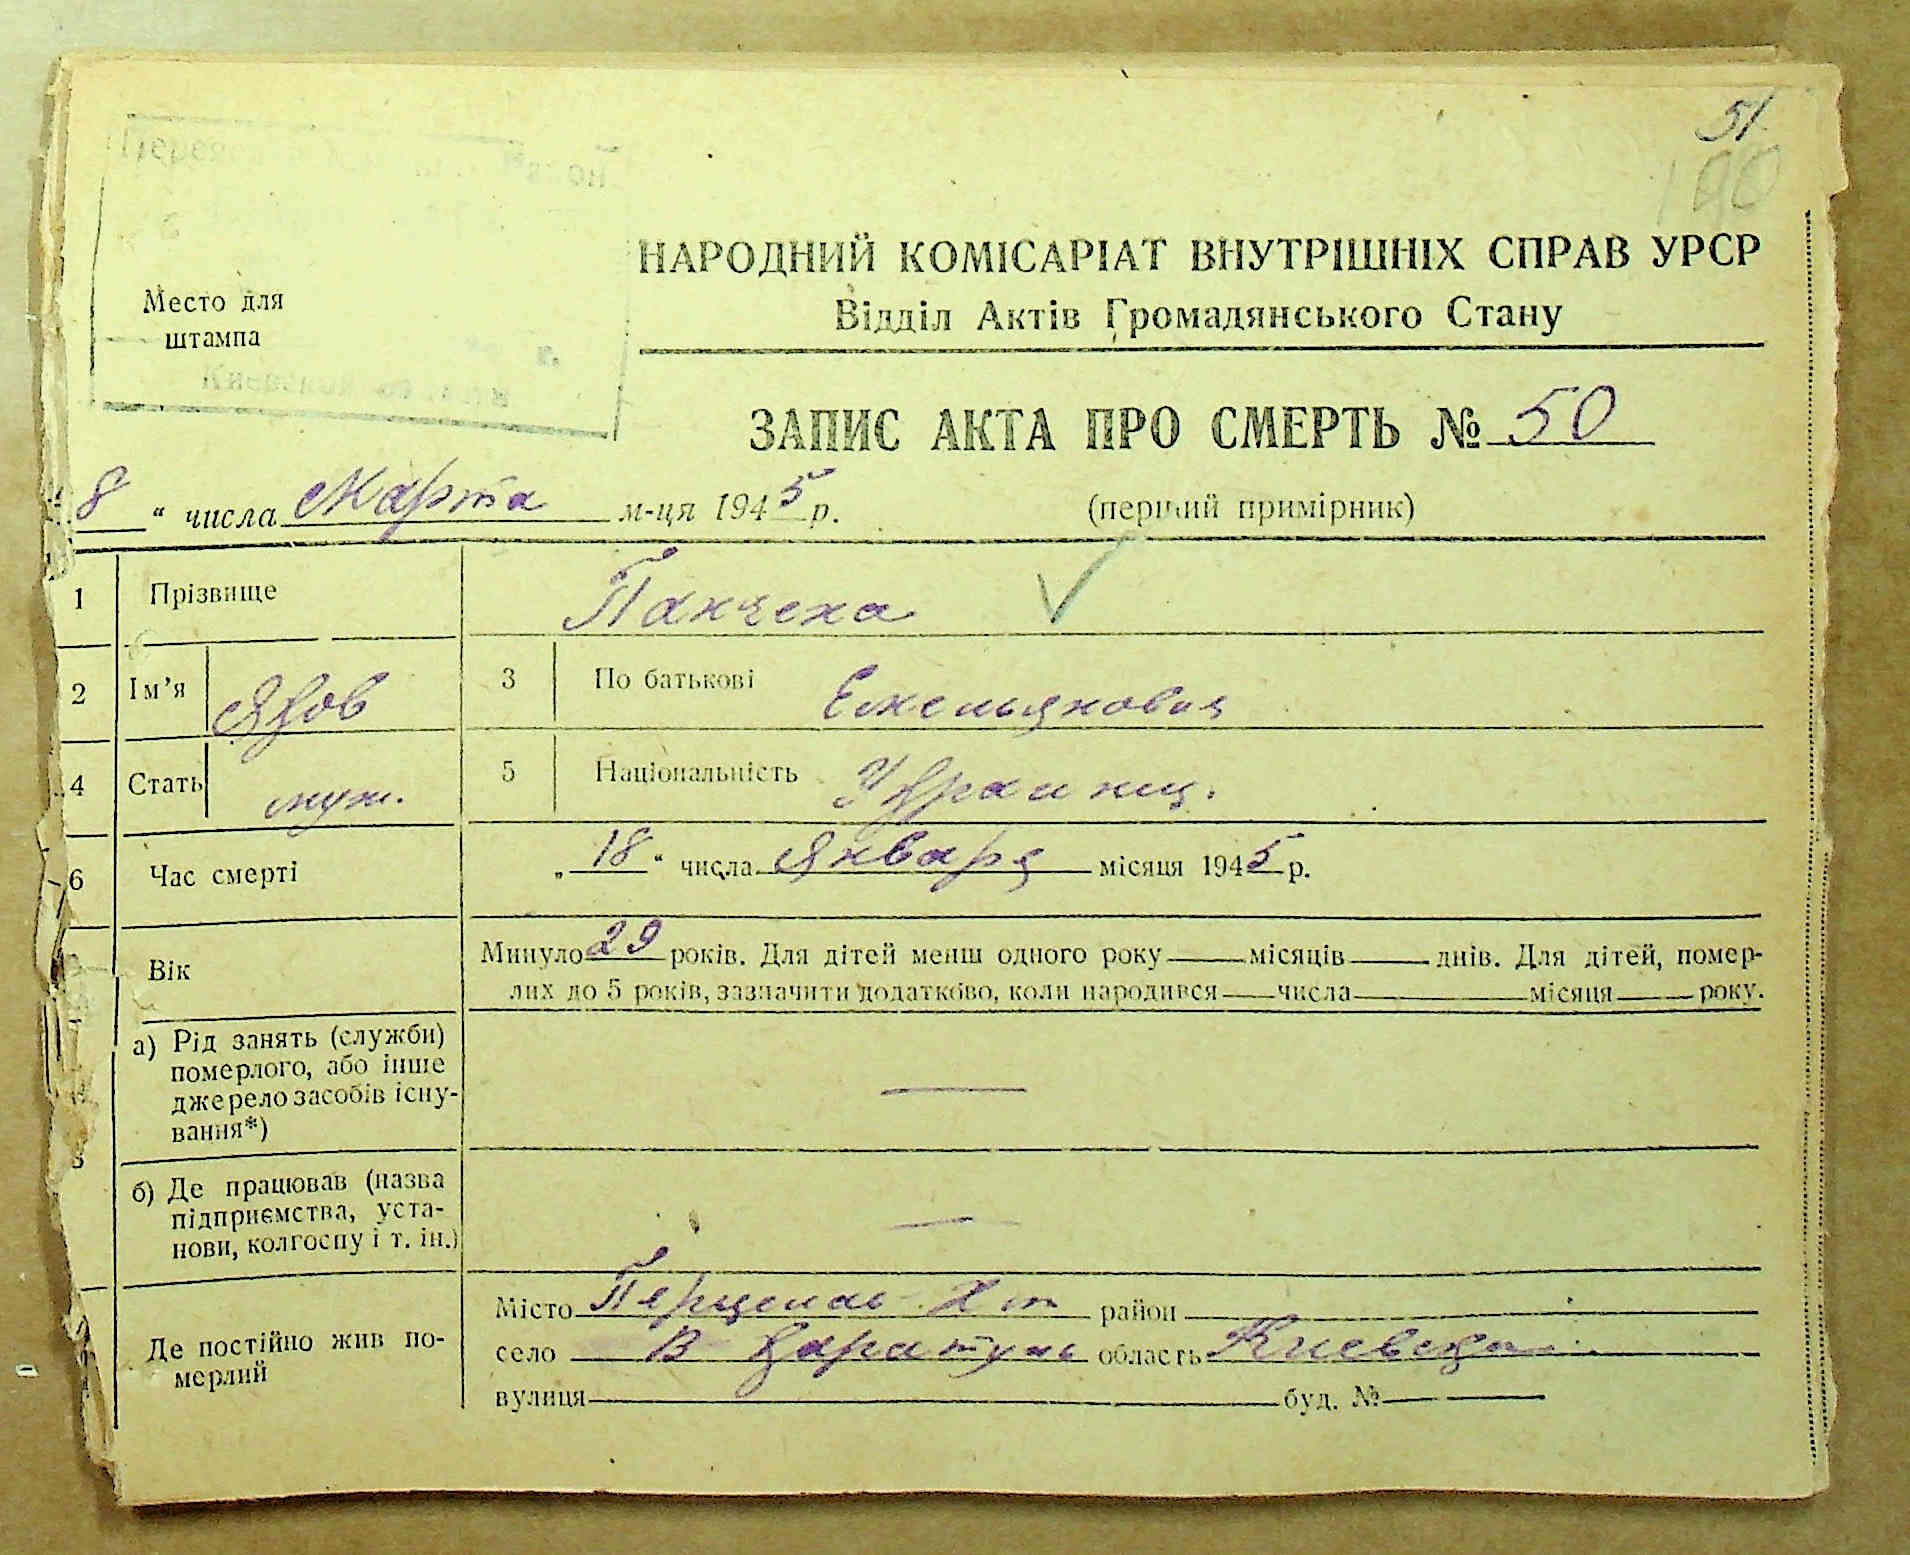 51
НАРОДНИЙ КОМІСАРІАТ ВНУТРІШНІХ СПРАВ УРСР
Відділ Актів Громадянського Стану
Место для
штампа
ЗАПИС АКТА ПРО СМЕРТЬ № 50
8 " числа Марта м-ця 1945 р.
(перший примірник)
1 Прізвище Панчеха
2 Ім'я Яков 3 По батькові Емельянович
4 Стать муж. 5 Національність Украинц.
6 Час смерті „ 18 " числа Января місяця 1945 р.
Вік Минуло 29 років. Для дітей менш одного року місяців днів. Для дітей, помер-
лих до 5 років, зазначити додатково, коли народився числа місяця року.
а) Рід занять (служби)
померлого, або інше
джерело засобів існу-
вання*)
б) Де працював (назва
підприємства, уста-
нови, колгоспу і т. ін.)
Де постійно жив по-
мерлий
Місто район
село В Каратуль область Киевска
вулиця буд. №